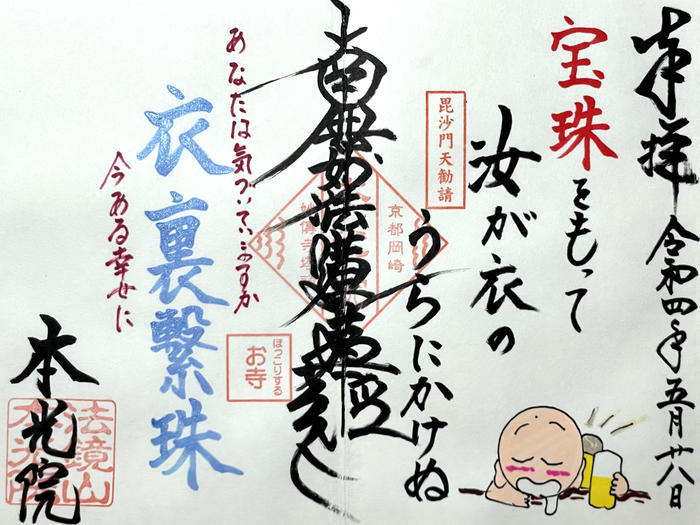 奉拝 令和四年五月廿八日
宝珠をもって
汝が衣の
うらにかけぬ
毘沙門天勧請
京都岡崎
南無妙法蓮華経
ほっこりする
お寺
あなたは気づいていますか
衣裏繋珠
今ある幸せに
本光院
法鏡山